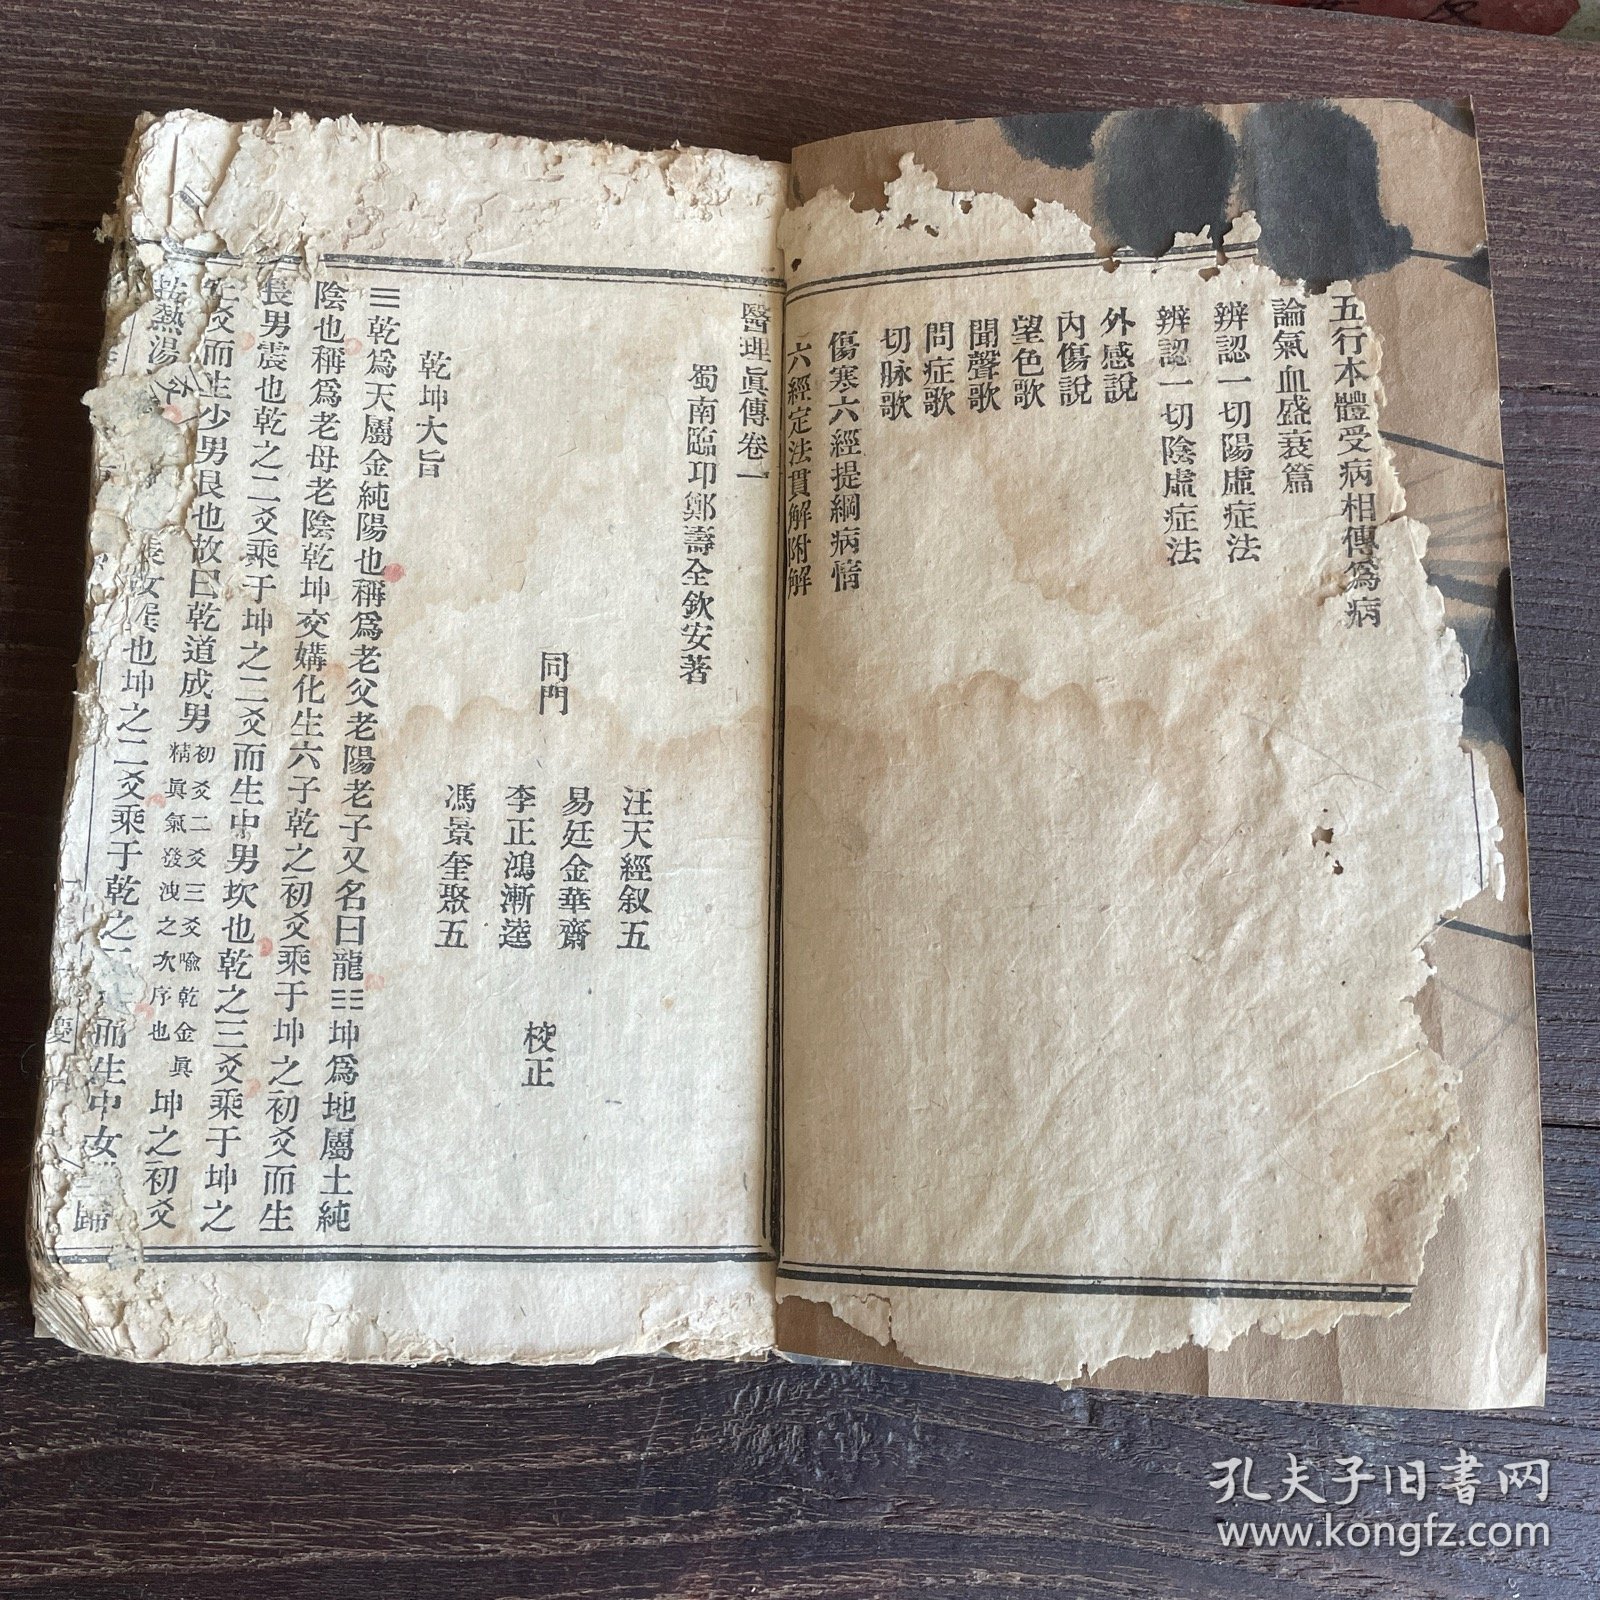 五行本體受病相傳爲病
論氣血盛衰篇
辨認一切陽虛症法
辨認一切陰虛症法
外感說
內傷說
望色歌
聞聲歌
問症歌
切脉歌
傷寒六經提綱病情
六經定法貫解附解
醫理眞傳卷一
蜀南臨邛鄭壽全欽安著
同門
汪天經叙五
易廷金華齋
李正鴻漸逵
馮景奎聚五
校正
乾坤大旨
☰乾爲天屬金純陽也稱爲老父老陽老子又名曰龍☷坤爲地屬土純
陰也稱爲老母老陰乾坤交媾化生六子乾之初爻乘于坤之初爻而生
長男震也乾之二爻乘于坤之二爻而生中男坎也乾之三爻乘于坤之
三爻而生少男艮也故曰乾道成男初爻二爻三爻喻乾金眞精眞氣發洩之次序也坤之初爻
長女巽也坤之二爻乘于乾之二爻而生中女
熱湯
慶
孔夫子旧书网
www.kongfz.com